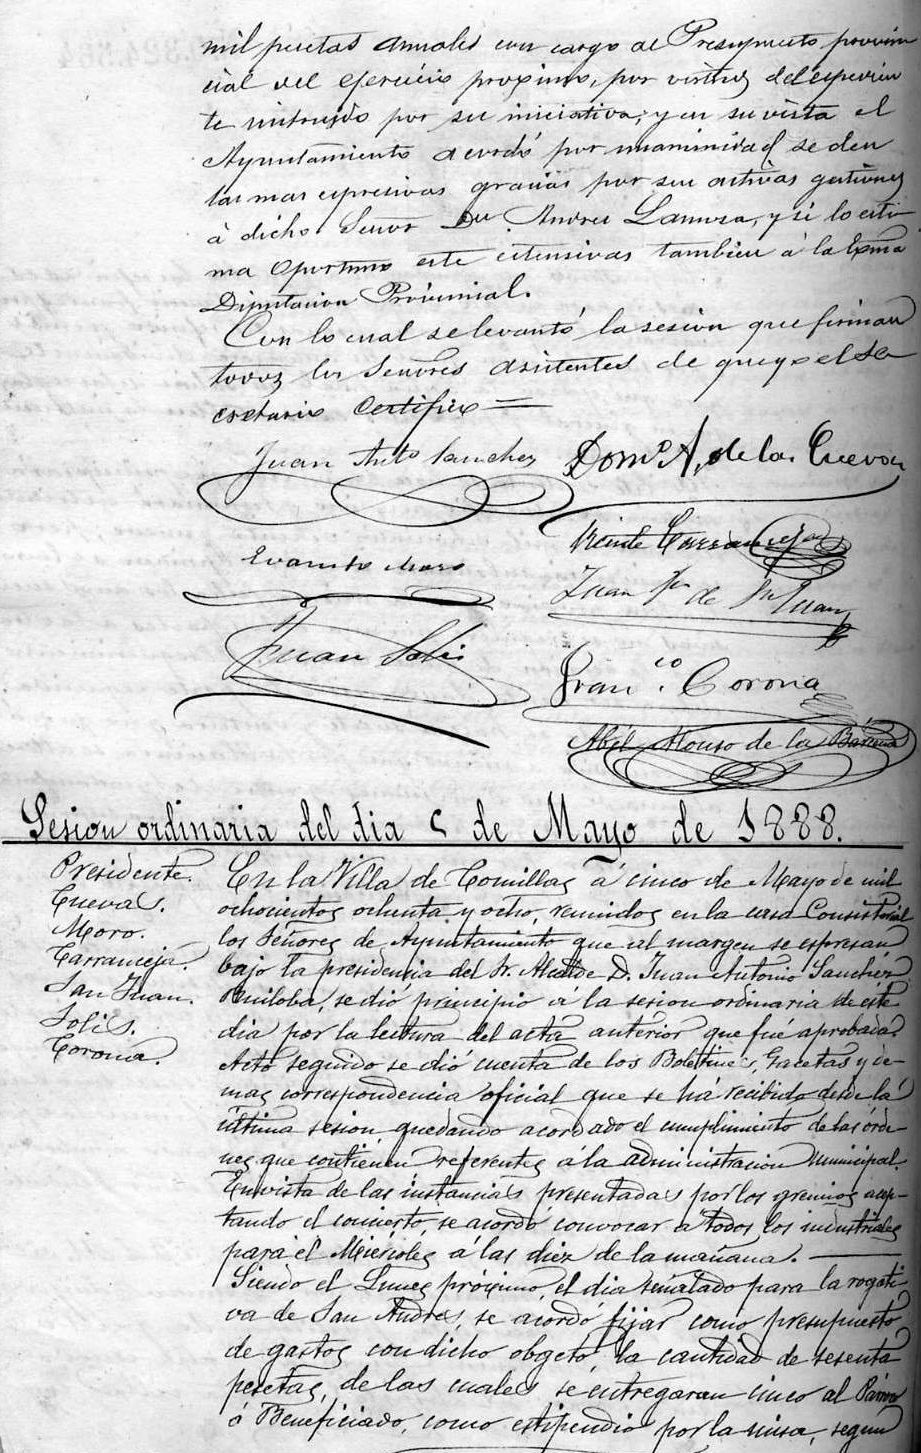 mil pesetas anuales con cargo al Presupuesto provin
cial del ejercicio proximo, por virtud del espedien
te instruido por su iniciativa; y en su vista el
Ayuntamiento acordó por unanimidad se den
las mas espresivas gracias por sus activas gestiones
á dicho Señor Dn Andres Lanuza, y si lo esti
ma oportuno este estensivas tambien á la Exma
Diputacion Provincial.
Con lo cual se levantó la sesion que firman
todos los Señores asistentes de que yo el Se
cretario Certifico =
Juan Anto Sanchez
Domo A. de la Cueva
Evaristo Moro
Vicente Carranceja
Juan Fn de Sn Juan
Juan Solis
Franco Corona
Abel Alonso de la Bárcena
Sesion ordinaria del dia 5 de Mayo de 1888.
Presidente.
Cueva.
Moro.
Carranceja.
San Juan.
Solis.
Corona.
En la Villa de Comillas á cinco de Mayo de mil
ochocientos ochenta y ocho, reunidos en la casa Consistorial
los Señores de Ayuntamiento que al margen se espresan
bajo la presidencia del Sr. Alcalde D. Juan Antonio Sanchez
Ruiloba, se dió principio á la sesion ordinaria de este
dia por la lectura del acta anterior que fué aprobada.
Acto seguido se dió cuenta de los Boletines, Gacetas y de-
mas correspondencia oficial que se há recibido desde la
última sesion quedando acordado el cumplimiento de las órde-
nes que contienen referentes á la administracion municipal.
En vista de las instancias presentadas por los gremios acep-
tando el concierto, se acordó convocar a todos los industriales
para el Miércoles á las diez de la mañana.
Siendo el Lunes próximo, el dia señalado para la rogati
va de San Andres, se acordó fijar como presupuesto
de gastos con dicho obgeto, la cantidad de sesenta
pesetas, de las cuales se entregaran cinco al Párroco
ó Beneficiado, como estipendio por la misa, segun